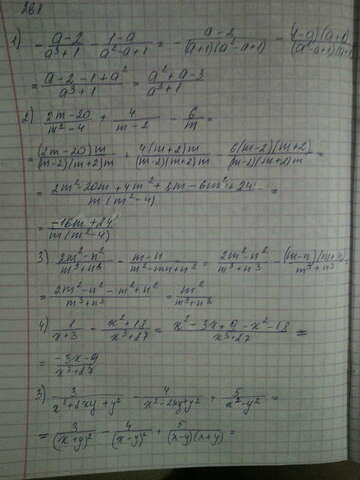 261
1) - a-2/a³+1 - 1-a/a²-a+1 = - a-2/(a+1)(a²-a+1) - (1-a)(a+1)/(a²-a+1)(a+1)
= a-2-1+a²/a³+1 = a²+a-3/a³+1
2) 2m-20/m²-4 + 4/m-2 - 6/m =
= (2m-20)m/(m-2)(m+2)m + 4(m+2)m/(m-2)(m+2)m - 6(m-2)(m+2)/(m-2)(m+2)m =
= 2m²-20m+4m²+8m-6m²+24/m(m²-4) =
= -16m+24/m(m²-4)
3) 2m²-n²/m³+n³ - m-n/m²-mn+n² = 2m²-n²/m³+n³ - (m-n)(m+n)/m³+n³ =
= 2m²-n²-m²+n²/m³+n³ = m²/m³+n³
4) 1/x+3 - x²+18/x³+27 = x²-3x+9-x²-18/x³+27 =
= -3x-9/x³+27
5) 3/x²+2xy+y² - 4/x²-2xy+y² + 5/x²-y² =
= 3/(x+y)² - 4/(x-y)² + 5/(x-y)(x+y) =